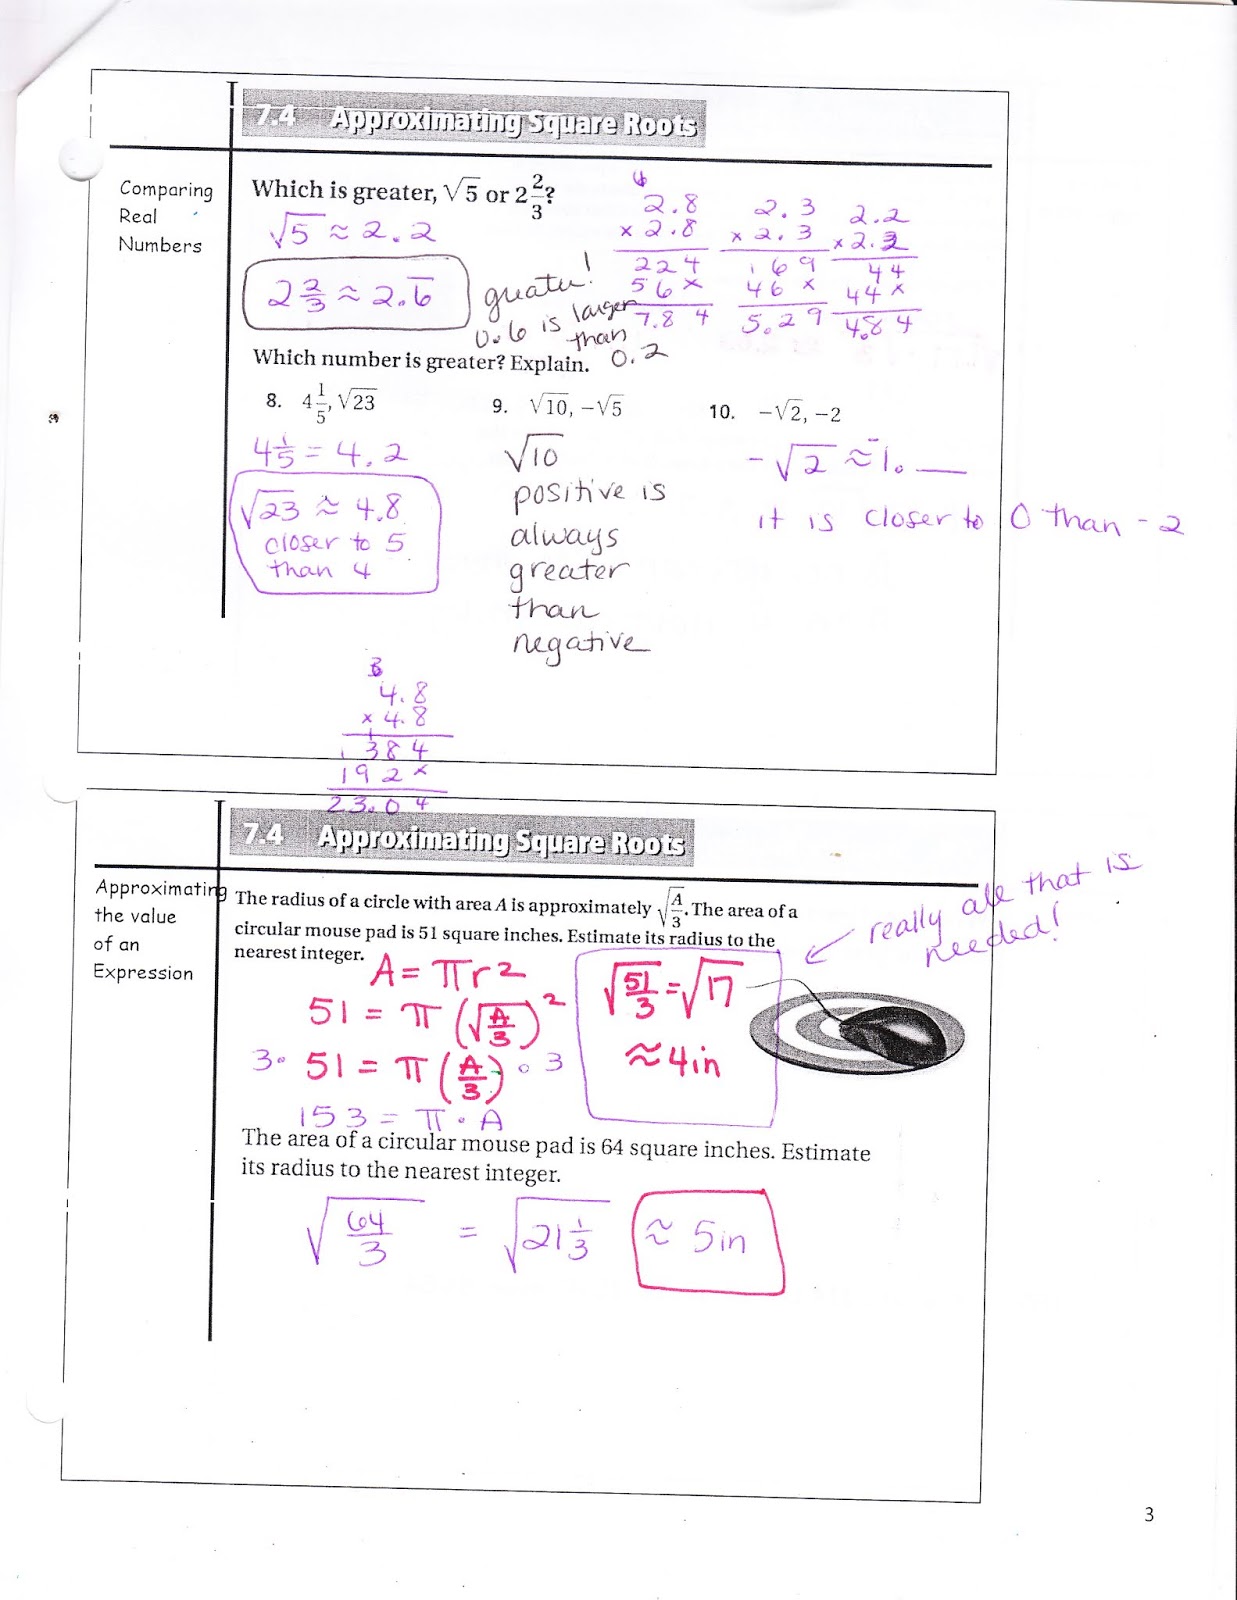 7.4 Approximating Square Roots
Comparing
Real
Numbers
Which is greater, √5 or 2 2/3?
√5 ≈ 2.2
2 2/3 ≈ 2.6̅
greater!
0.6 is larger
than
0.2
2.8
× 2.8
224
56×
7.84
2.3
× 2.3
169
46×
5.29
2.2
× 2.2
44
44×
4.84
Which number is greater? Explain.
8. 4 1/5, √23
4 1/5 = 4.2
√23 ≈ 4.8
closer to 5
than 4
9. √10, −√5
√10
positive is
always
greater
than
negative
10. −√2, −2
-√2 ≈ -1.__
it is closer to 0 than -2
3
4.8
× 4.8
384
192×
23.04
7.4 Approximating Square Roots
Approximating
the value
of an
Expression
The radius of a circle with area A is approximately √(A/3). The area of a
circular mouse pad is 51 square inches. Estimate its radius to the
nearest integer.
A = πr²
51 = π(√(A/3))²
3· 51 = π(A/3) · 3
153 = π · A
√(51/3) = √17
≈ 4in
really all that is
needed!
The area of a circular mouse pad is 64 square inches. Estimate
its radius to the nearest integer.
√(64/3) = √(21 1/3) ≈ 5in
3